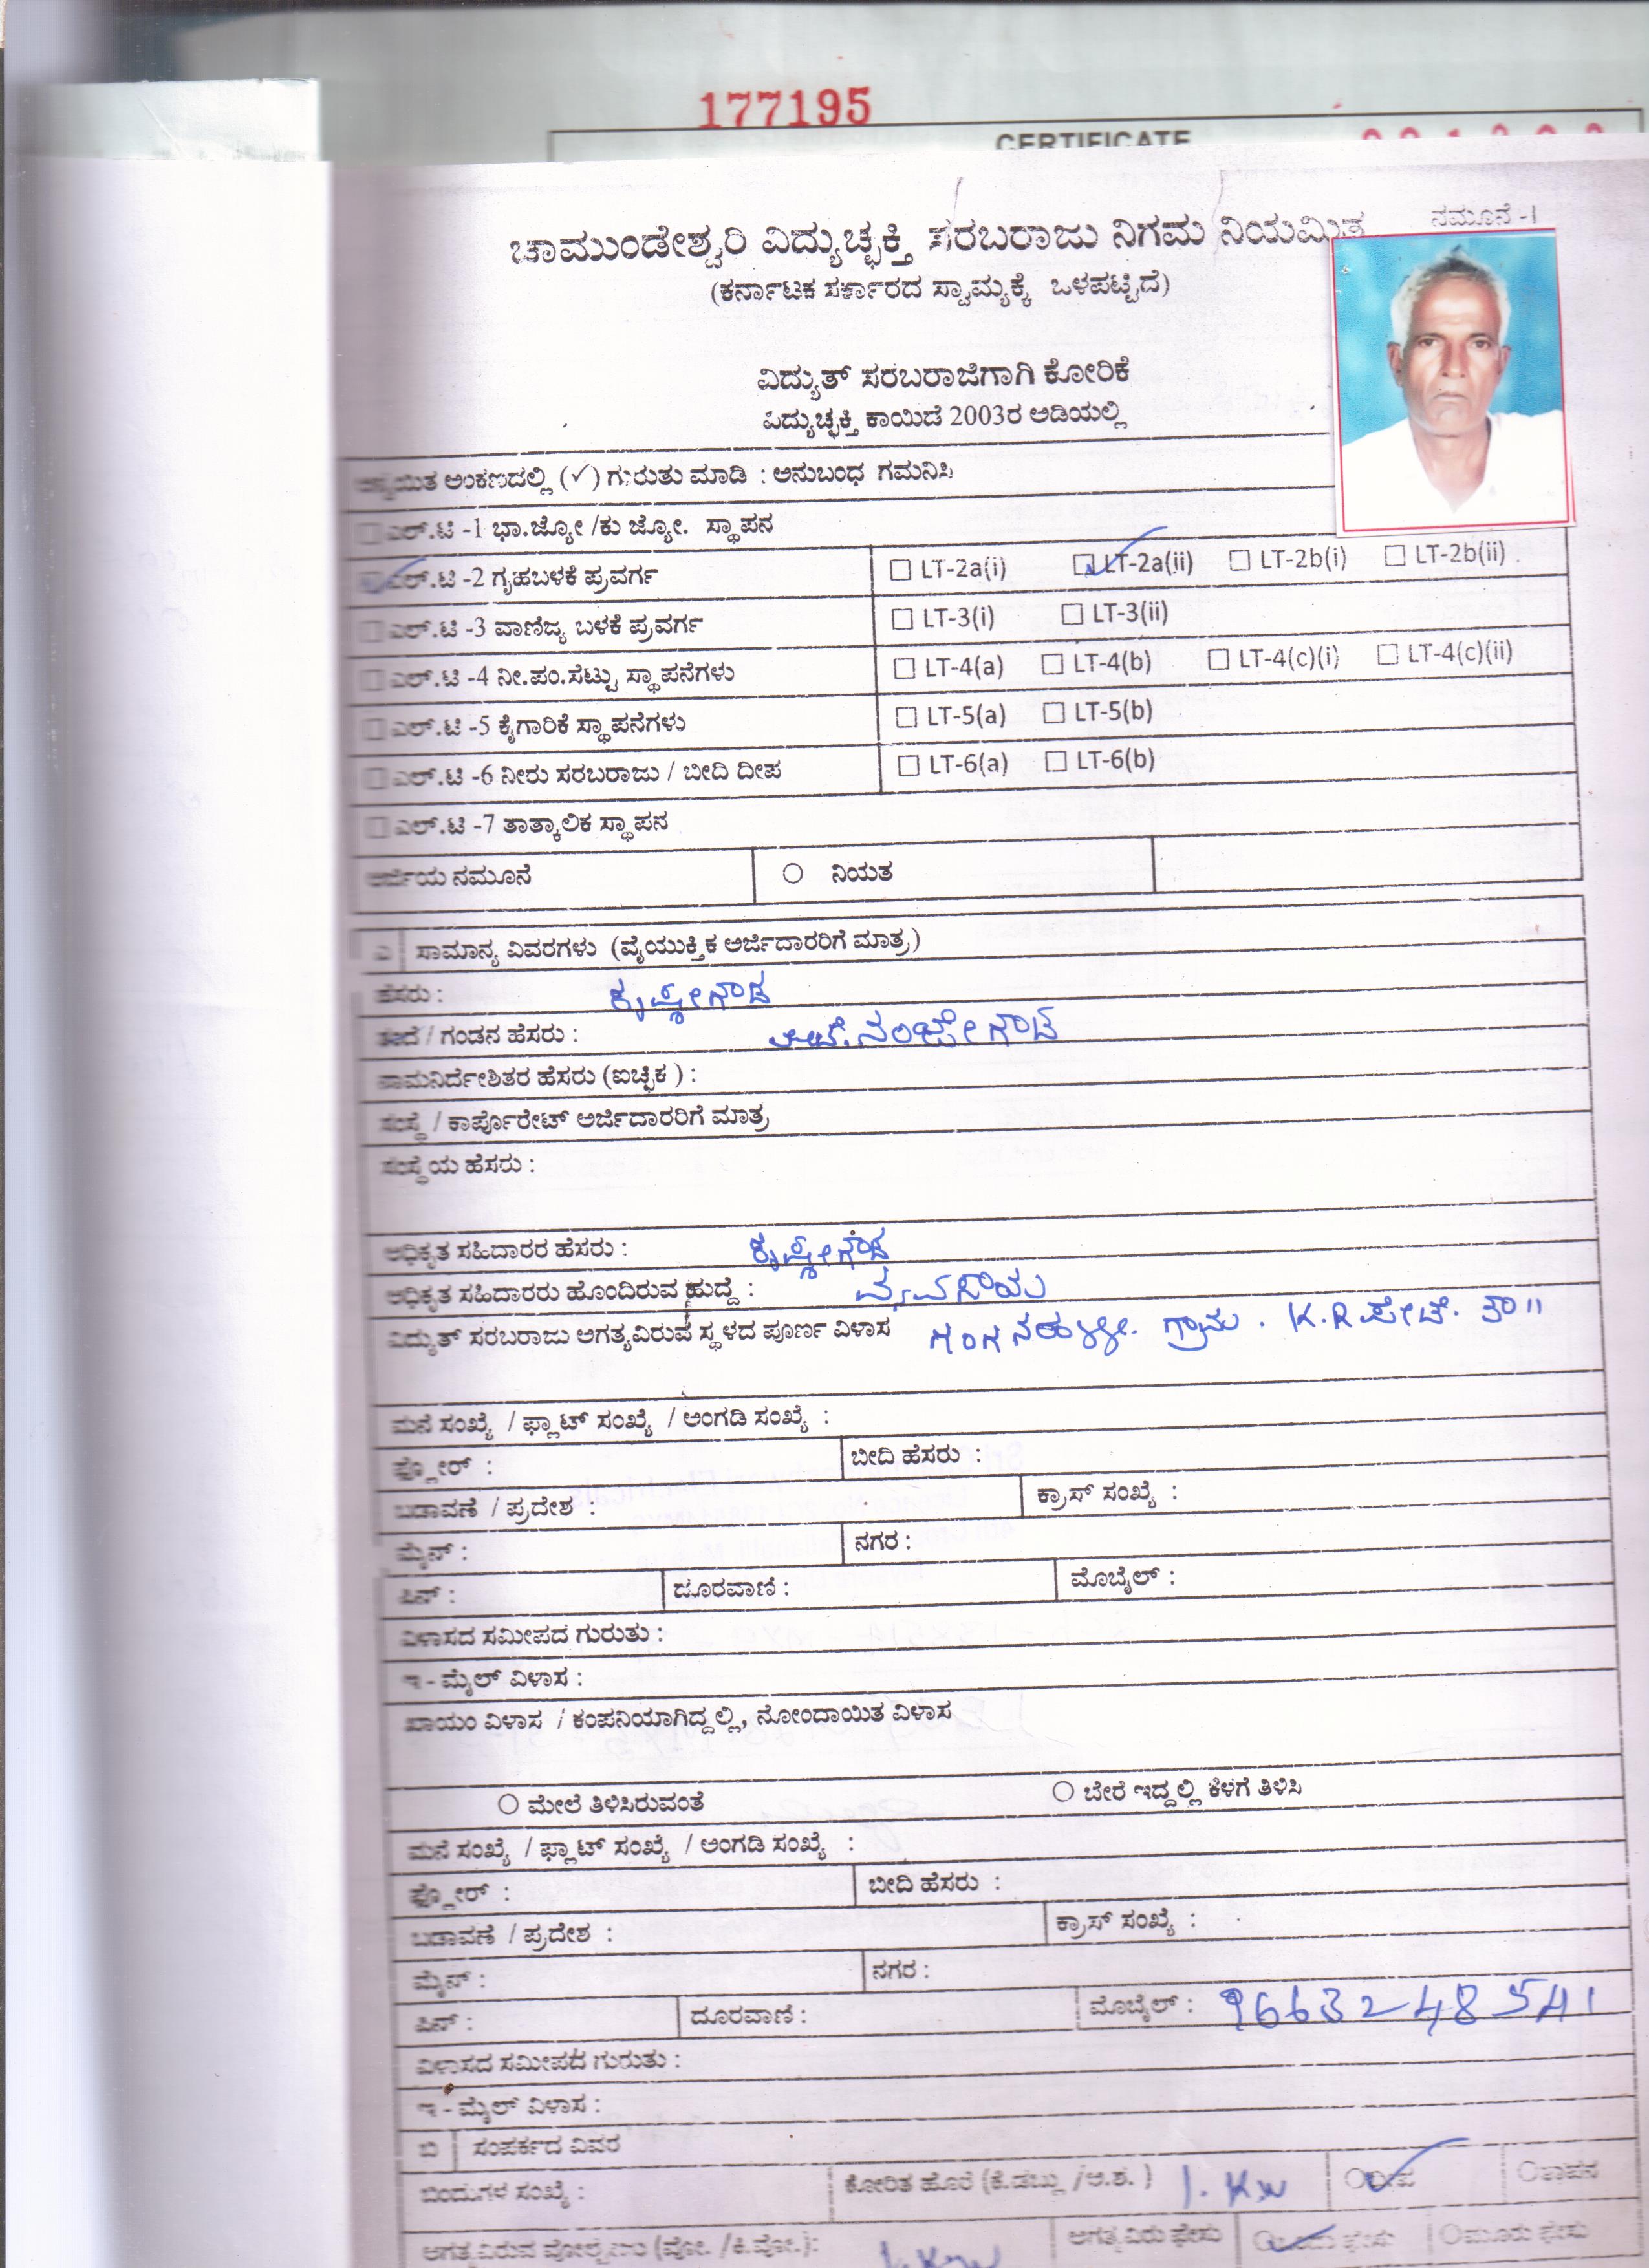 177195
CERTIFICATE
ನಮೂನೆ -1
ಚಾಮುಂಡೇಶ್ವರಿ ವಿದ್ಯುಚ್ಛಕ್ತಿ ಸರಬರಾಜು ನಿಗಮ ನಿಯಮಿತ
(ಕರ್ನಾಟಕ ಸರ್ಕಾರದ ಸ್ವಾಮ್ಯಕ್ಕೆ ಒಳಪಟ್ಟಿದೆ)
ವಿದ್ಯುತ್ ಸರಬರಾಜಿಗಾಗಿ ಕೋರಿಕೆ
ವಿದ್ಯುಚ್ಛಕ್ತಿ ಕಾಯಿದೆ 2003ರ ಅಡಿಯಲ್ಲಿ
ಅಂಕಣದಲ್ಲಿ (✓) ಗುರುತು ಮಾಡಿ : ಅನುಬಂಧ ಗಮನಿಸಿ
ಎಲ್.ಟಿ -1 ಭಾ.ಜ್ಯೋ /ಕು ಜ್ಯೋ. ಸ್ಥಾಪನ
ಎಲ್.ಟಿ -2 ಗೃಹಬಳಕೆ ಪ್ರವರ್ಗ LT-2a(i) LT-2a(ii) LT-2b(i) LT-2b(ii)
ಎಲ್.ಟಿ -3 ವಾಣಿಜ್ಯ ಬಳಕೆ ಪ್ರವರ್ಗ LT-3(i) LT-3(ii)
ಎಲ್.ಟಿ -4 ನೀ.ಪಂ.ಸೆಟ್ಟು ಸ್ಥಾಪನೆಗಳು LT-4(a) LT-4(b) LT-4(c)(i) LT-4(c)(ii)
ಎಲ್.ಟಿ -5 ಕೈಗಾರಿಕೆ ಸ್ಥಾಪನೆಗಳು LT-5(a) LT-5(b)
ಎಲ್.ಟಿ -6 ನೀರು ಸರಬರಾಜು / ಬೀದಿ ದೀಪ LT-6(a) LT-6(b)
ಎಲ್.ಟಿ -7 ತಾತ್ಕಾಲಿಕ ಸ್ಥಾಪನ
ಅರ್ಜಿಯ ನಮೂನೆ ನಿಯತ
ಎ ಸಾಮಾನ್ಯ ವಿವರಗಳು (ವೈಯುಕ್ತಿಕ ಅರ್ಜಿದಾರರಿಗೆ ಮಾತ್ರ)
ಹೆಸರು : ಕೃಷ್ಣೇಗೌಡ
ತಂದೆ / ಗಂಡನ ಹೆಸರು : ನಂಜೇಗೌಡ
ನಾಮನಿರ್ದೇಶಿತರ ಹೆಸರು (ಐಚ್ಛಿಕ ) :
ಸಂಸ್ಥೆ / ಕಾರ್ಪೊರೇಟ್ ಅರ್ಜಿದಾರರಿಗೆ ಮಾತ್ರ
ಸಂಸ್ಥೆಯ ಹೆಸರು :
ಅಧಿಕೃತ ಸಹಿದಾರರ ಹೆಸರು : ಕೃಷ್ಣೇಗೌಡ
ಅಧಿಕೃತ ಸಹಿದಾರರು ಹೊಂದಿರುವ ಹುದ್ದೆ : ವ್ಯವಸಾಯ
ವಿದ್ಯುತ್ ಸರಬರಾಜು ಅಗತ್ಯವಿರುವ ಸ್ಥಳದ ಪೂರ್ಣ ವಿಳಾಸ ಗಂಗನಹಳ್ಳಿ. ಗ್ರಾಮ. K.R ಪೇಟೆ. ತಾ॥
ಮನೆ ಸಂಖ್ಯೆ / ಫ್ಲಾಟ್ ಸಂಖ್ಯೆ / ಅಂಗಡಿ ಸಂಖ್ಯೆ :
ಫ್ಲೋರ್ : ಬೀದಿ ಹೆಸರು :
ಬಡಾವಣೆ / ಪ್ರದೇಶ : ಕ್ರಾಸ್ ಸಂಖ್ಯೆ :
ಮೈನ್ : ನಗರ :
ಪಿನ್ : ದೂರವಾಣಿ : ಮೊಬೈಲ್ :
ವಿಳಾಸದ ಸಮೀಪದ ಗುರುತು :
ಇ - ಮೈಲ್ ವಿಳಾಸ :
ಖಾಯಂ ವಿಳಾಸ / ಕಂಪನಿಯಾಗಿದ್ದಲ್ಲಿ, ನೋಂದಾಯಿತ ವಿಳಾಸ
ಮೇಲೆ ತಿಳಿಸಿರುವಂತೆ ಬೇರೆ ಇದ್ದಲ್ಲಿ ಕೆಳಗೆ ತಿಳಿಸಿ
ಮನೆ ಸಂಖ್ಯೆ / ಫ್ಲಾಟ್ ಸಂಖ್ಯೆ / ಅಂಗಡಿ ಸಂಖ್ಯೆ :
ಫ್ಲೋರ್ : ಬೀದಿ ಹೆಸರು :
ಬಡಾವಣೆ / ಪ್ರದೇಶ : ಕ್ರಾಸ್ ಸಂಖ್ಯೆ :
ಮೈನ್ : ನಗರ :
ಪಿನ್ : ದೂರವಾಣಿ : ಮೊಬೈಲ್ : 9663248541
ವಿಳಾಸದ ಸಮೀಪದ ಗುರುತು :
ಇ - ಮೈಲ್ ವಿಳಾಸ :
ಬಿ ಸಂಪರ್ಕದ ವಿವರ
ಬಿಂದುಗಳ ಸಂಖ್ಯೆ : ಕೋರಿತ ಹೊರೆ (ಕೆ.ಡಬ್ಲು /ಅ.ಶ. ) 1. KW ದೀಪ ತಾಪನ
ಅಗತ್ಯವಿರುವ (ವೋ. /ಕಿ.ವೋ.): ಅಗತ್ಯವಿರು ಫೇಸು ಮೂರು ಫೇಸು